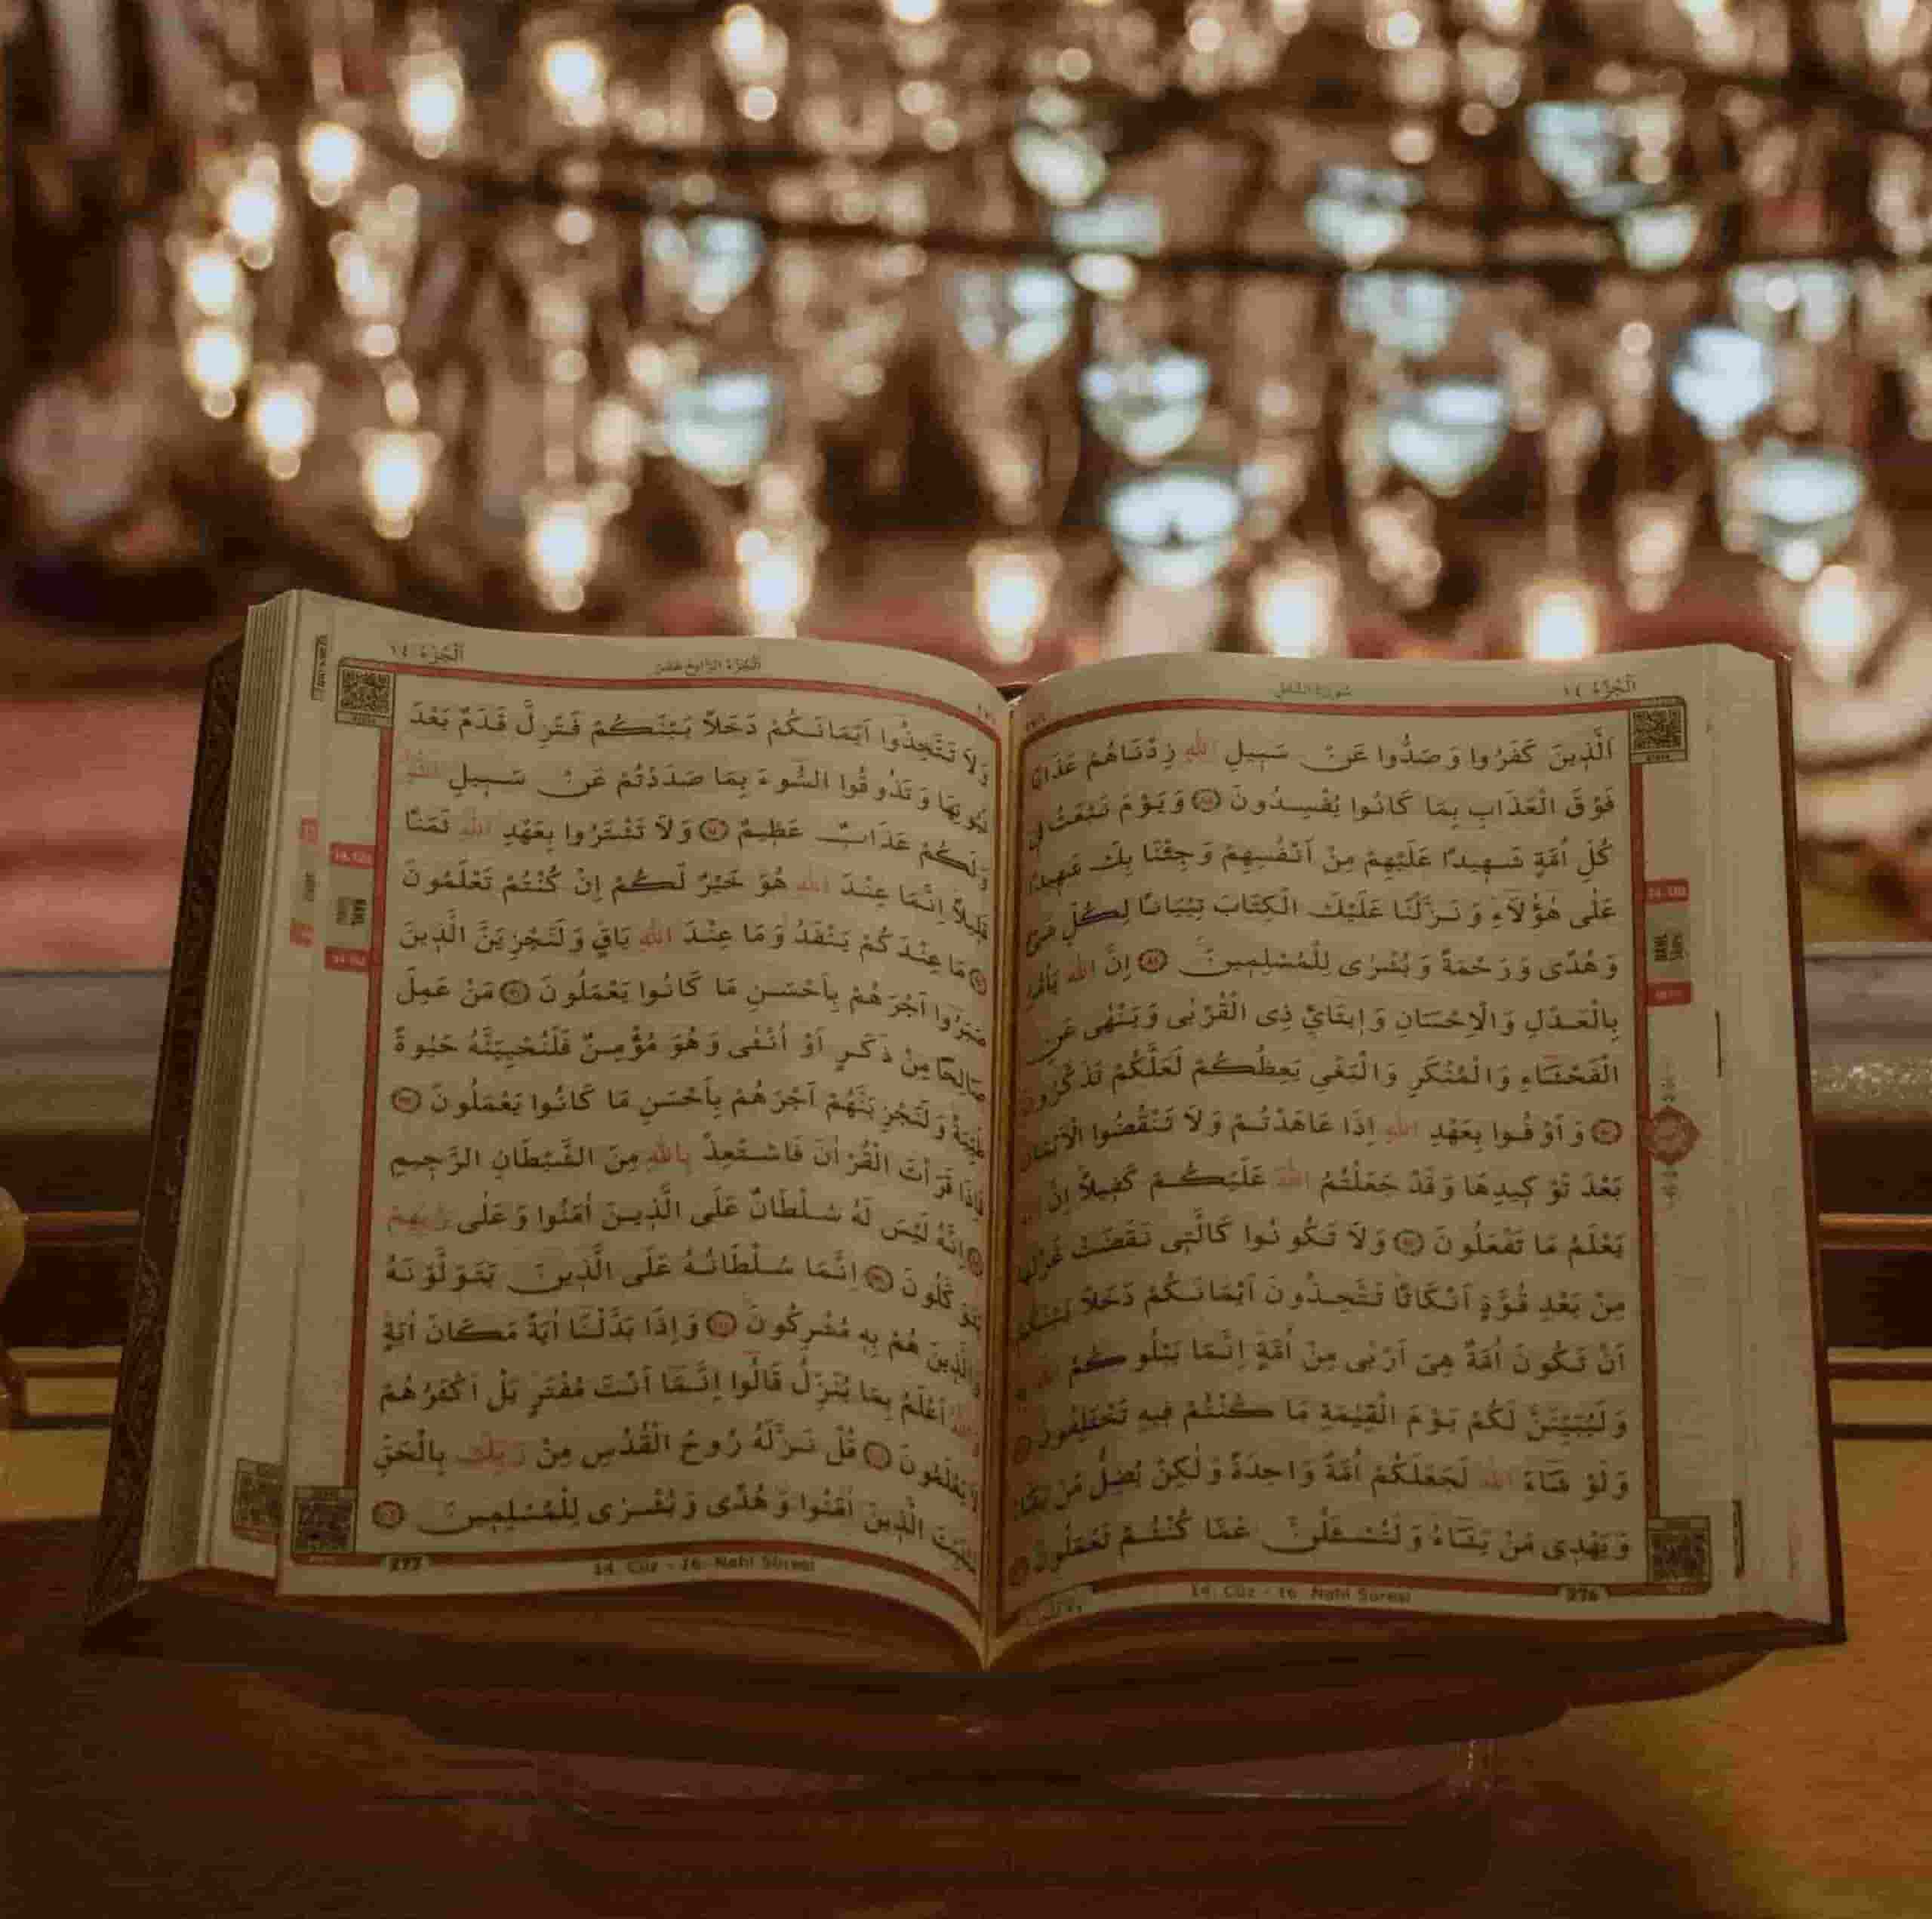 سورة النحل
اَلْجُزْءُ ١٤
اَلَّذِينَ كَفَرُوا وَصَدُّوا عَنْ سَبِيلِ اللهِ زِدْنَاهُمْ عَذَابًا
فَوْقَ الْعَذَابِ بِمَا كَانُوا يُفْسِدُونَ ﴿٨٨﴾ وَيَوْمَ نَبْعَثُ فِي
كُلِّ اُمَّةٍ شَهِيدًا عَلَيْهِمْ مِنْ اَنْفُسِهِمْ وَجِئْنَا بِكَ شَهِيدًا
عَلٰى هٰٓؤُ۬لَٓاءِ وَنَزَّلْنَا عَلَيْكَ الْكِتَابَ تِبْيَانًا لِكُلِّ شَيْءٍ
وَهُدًى وَرَحْمَةً وَبُشْرٰى لِلْمُسْلِمِينَ ﴿٨٩﴾ اِنَّ اللهَ يَأْمُرُ
بِالْعَدْلِ وَالْاِحْسَانِ وَاِيتَٓائِ ذِى الْقُرْبٰى وَيَنْهٰى عَنِ
الْفَحْشَٓاءِ وَالْمُنْكَرِ وَالْبَغْىِ يَعِظُكُمْ لَعَلَّكُمْ تَذَكَّرُونَ
﴿٩٠﴾ وَاَوْفُوا بِعَهْدِ اللهِ اِذَا عَاهَدْتُمْ وَلَا تَنْقُضُوا الْاَيْمَانَ
بَعْدَ تَوْكِيدِهَا وَقَدْ جَعَلْتُمُ اللهَ عَلَيْكُمْ كَفِيلًا اِنَّ
يَعْلَمُ مَا تَفْعَلُونَ ﴿٩١﴾ وَلَا تَكُونُوا كَالَّتِى نَقَضَتْ غَزْلَهَا
مِنْ بَعْدِ قُوَّةٍ اَنْكَاثًا تَتَّخِذُونَ اَيْمَانَكُمْ دَخَلًا بَيْنَكُمْ
اَنْ تَكُونَ اُمَّةٌ هِىَ اَرْبٰى مِنْ اُمَّةٍ اِنَّمَا يَبْلُوكُمُ
وَلَيُبَيِّنَنَّ لَكُمْ يَوْمَ الْقِيٰمَةِ مَا كُنْتُمْ فِيهِ تَخْتَلِفُونَ
وَلَوْ شَٓاءَ اللهُ لَجَعَلَكُمْ اُمَّةً وَاحِدَةً وَلٰكِنْ يُضِلُّ مَنْ يَشَٓاءُ
وَيَهْدِى مَنْ يَشَٓاءُ وَلَتُسْـَٔلُنَّ عَمَّا كُنْتُمْ تَعْمَلُونَ
14. Cüz - 16. Nahl Sûresi
276
اَلْجُزْءُ الرَّابِعُ عَشَرَ
اَلْجُزْءُ ١٤
وَلَا تَتَّخِذُٓوا اَيْمَانَكُمْ دَخَلًا بَيْنَكُمْ فَتَزِلَّ قَدَمٌ بَعْدَ
ثُبُوتِهَا وَتَذُوقُوا السُّٓوءَ بِمَا صَدَدْتُمْ عَنْ سَبِيلِ اللهِ
وَلَكُمْ عَذَابٌ عَظِيمٌ ﴿٩٤﴾ وَلَا تَشْتَرُوا بِعَهْدِ اللهِ ثَمَنًا
قَلِيلًا اِنَّمَا عِنْدَ اللهِ هُوَ خَيْرٌ لَكُمْ اِنْ كُنْتُمْ تَعْلَمُونَ
﴿٩٥﴾ مَا عِنْدَكُمْ يَنْفَدُ وَمَا عِنْدَ اللهِ بَاقٍ وَلَنَجْزِيَنَّ الَّذِينَ
صَبَرُٓوا اَجْرَهُمْ بِاَحْسَنِ مَا كَانُوا يَعْمَلُونَ ﴿٩٦﴾ مَنْ عَمِلَ
صَالِحًا مِنْ ذَكَرٍ اَوْ اُنْثٰى وَهُوَ مُؤْمِنٌ فَلَنُحْيِيَنَّهُ حَيٰوةً
طَيِّبَةً وَلَنَجْزِيَنَّهُمْ اَجْرَهُمْ بِاَحْسَنِ مَا كَانُوا يَعْمَلُونَ ﴿٩٧﴾
فَاِذَا قَرَأْتَ الْقُرْاٰنَ فَاسْتَعِذْ بِاللهِ مِنَ الشَّيْطَانِ الرَّجِيمِ
﴿٩٨﴾ اِنَّهُ لَيْسَ لَهُ سُلْطَانٌ عَلَى الَّذِينَ اٰمَنُوا وَعَلٰى رَبِّهِمْ
يَتَوَكَّلُونَ ﴿٩٩﴾ اِنَّمَا سُلْطَانُهُ عَلَى الَّذِينَ يَتَوَلَّوْنَهُ
وَالَّذِينَ هُمْ بِهِ مُشْرِكُونَ ﴿١٠٠﴾ وَاِذَا بَدَّلْنَٓا اٰيَةً مَكَانَ اٰيَةٍ
وَاللهُ اَعْلَمُ بِمَا يُنَزِّلُ قَالُٓوا اِنَّمَٓا اَنْتَ مُفْتَرٍ بَلْ اَكْثَرُهُمْ
لَا يَعْلَمُونَ ﴿١٠١﴾ قُلْ نَزَّلَهُ رُوحُ الْقُدُسِ مِنْ رَبِّكَ بِالْحَقِّ
لِيُثَبِّتَ الَّذِينَ اٰمَنُوا وَهُدًى وَبُشْرٰى لِلْمُسْلِمِينَ ﴿١٠٢﴾
277
14. Cüz - 16. Nahl Sûresi